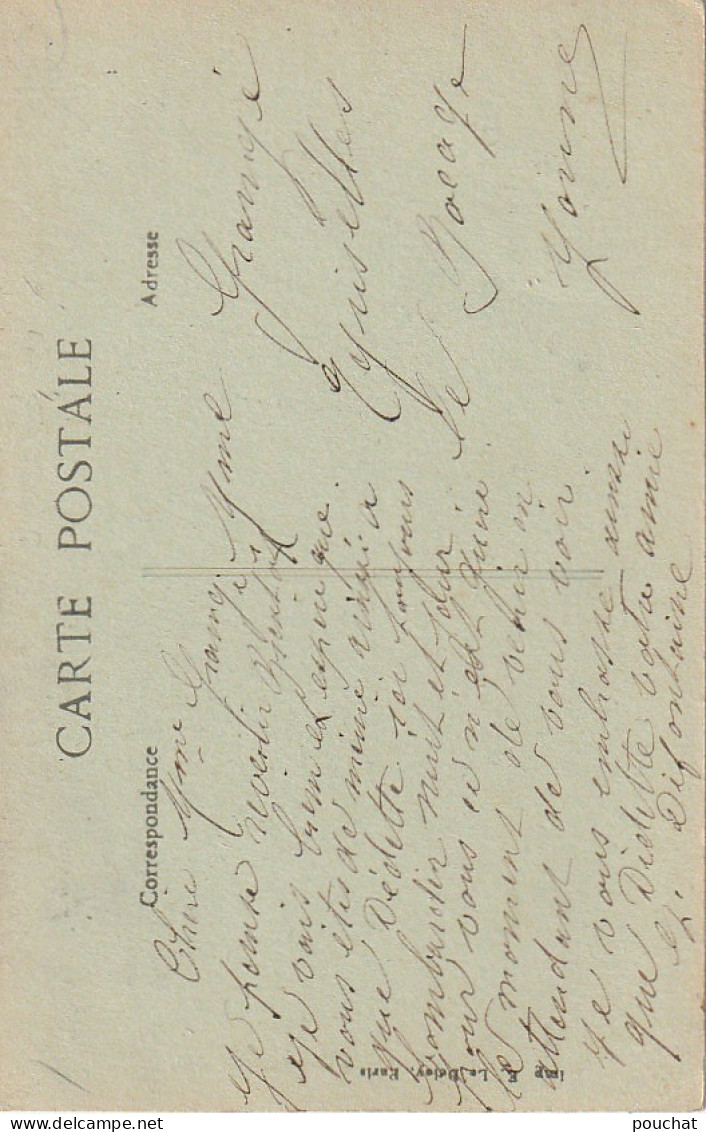 CARTE POSTALE
Correspondance
Adresse
Chère Mme Grangé
Je pense revenir bientot
je vais bien et espère que
vous etes de même ainsi
que Didette ici toujours
bombardér nuit et jour
pour vous ce n'est guère
le moment de venir en
attendant de vous voir.
Je vous embrasse ainsi
que Didette votre amie
G. Difontaine
Mme Grangé
Eguisettes
le Bocage
Yonne
Imp. E. Le Deley, Paris
pouchat delcampe.net